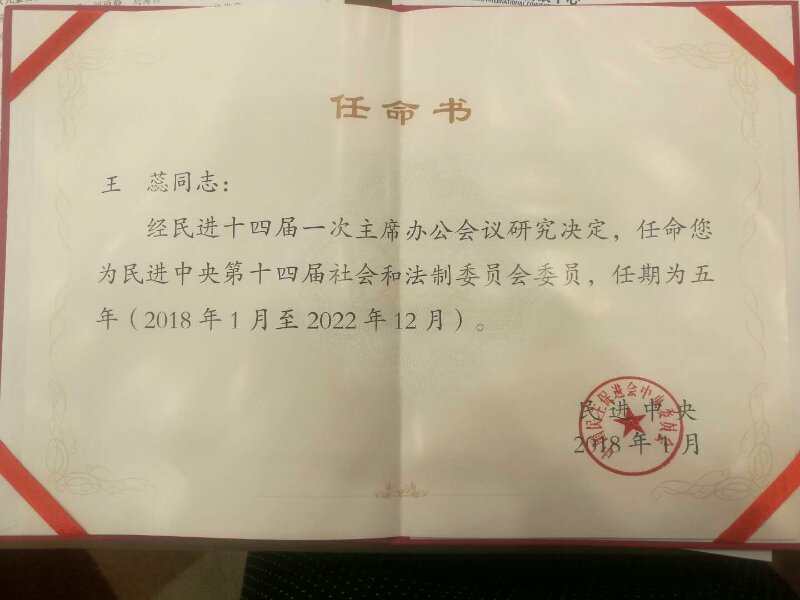 任命书
王 蕊同志：
经民进十四届一次主席办公会议研究决定，任命您
为民进中央第十四届社会和法制委员会委员，任期为五
年（2018年1月至2022年12月）。
民进中央
2018年1月
中国民主促进会中央委员会